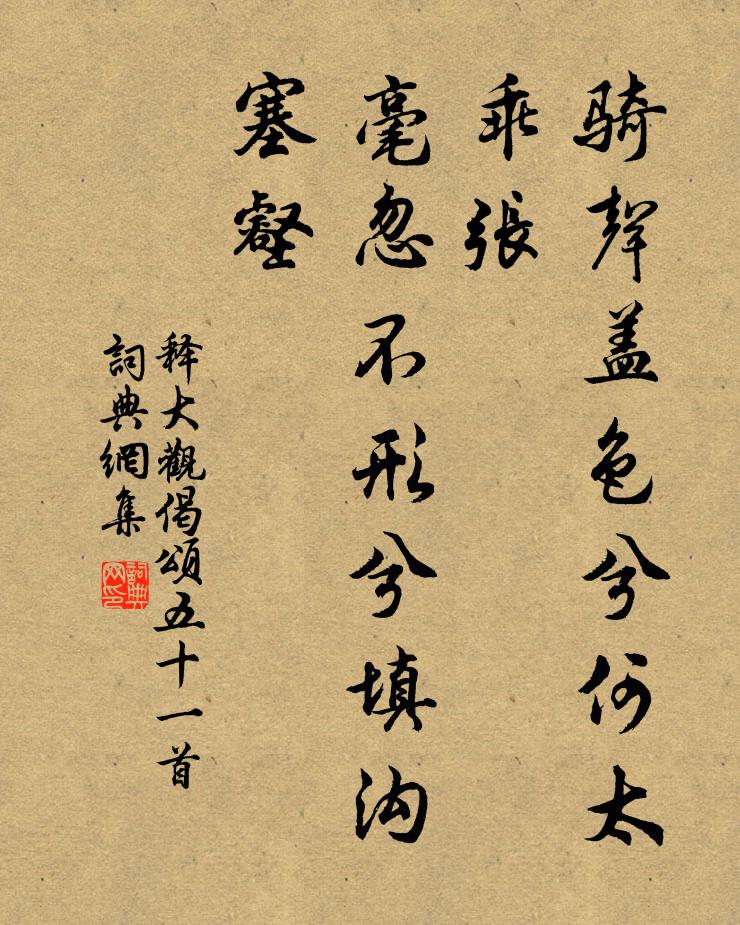 骑聲盖色兮何太
乖張
毫忽不形兮填沟
塞壑
释大觀偈頌五十一首
詞典網集
詞典
网印